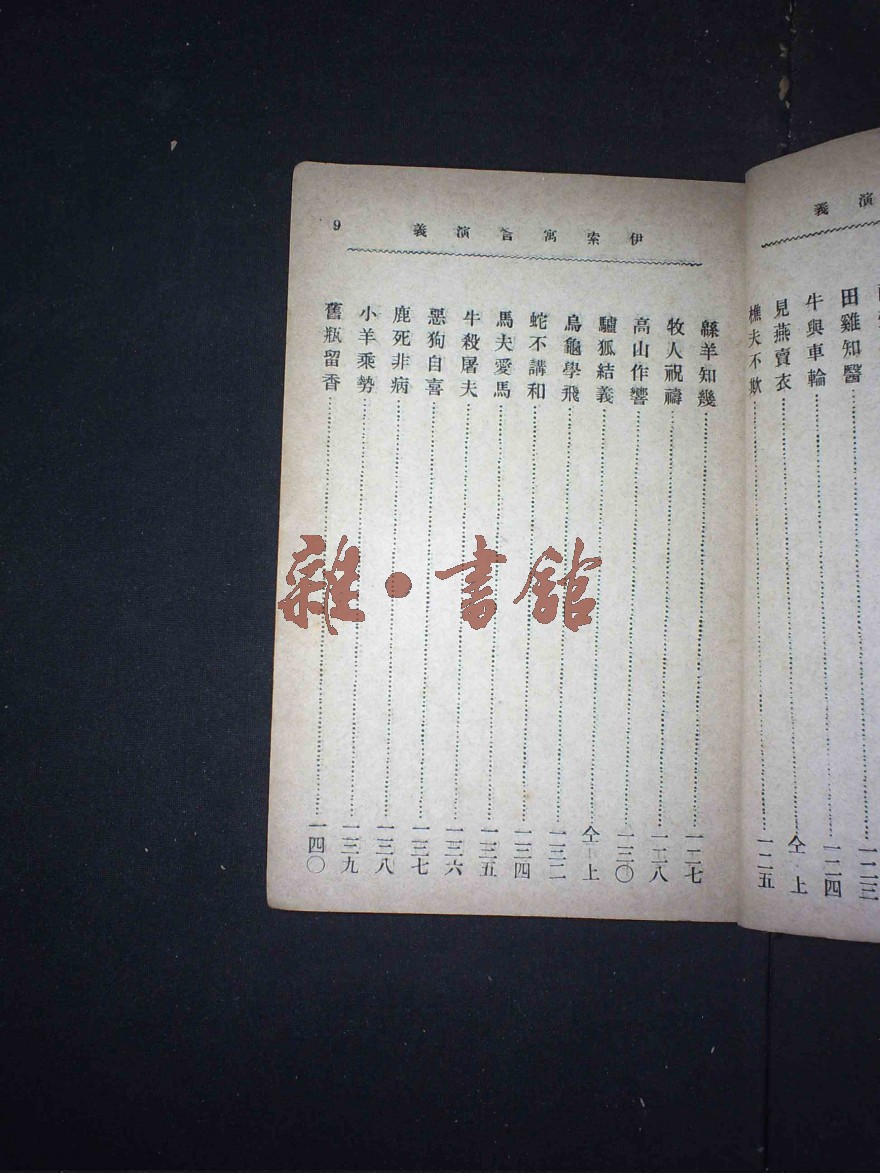 演義
一二三
田雞知醫 一二四
牛與車輪 仝上
見燕賣衣 一二五
樵夫不欺
伊索寓言演義 9
緜羊知幾 一二七
牧人祝禱 一二八
高山作響 一三〇
驢狐結義 仝上
烏龜學飛 一三二
蛇不講和 一三四
馬夫愛馬 一三五
牛殺屠夫 一三六
惡狗自喜 一三七
鹿死非病 一三八
小羊乘勢 一三九
舊瓶留香 一四〇
雜·書館